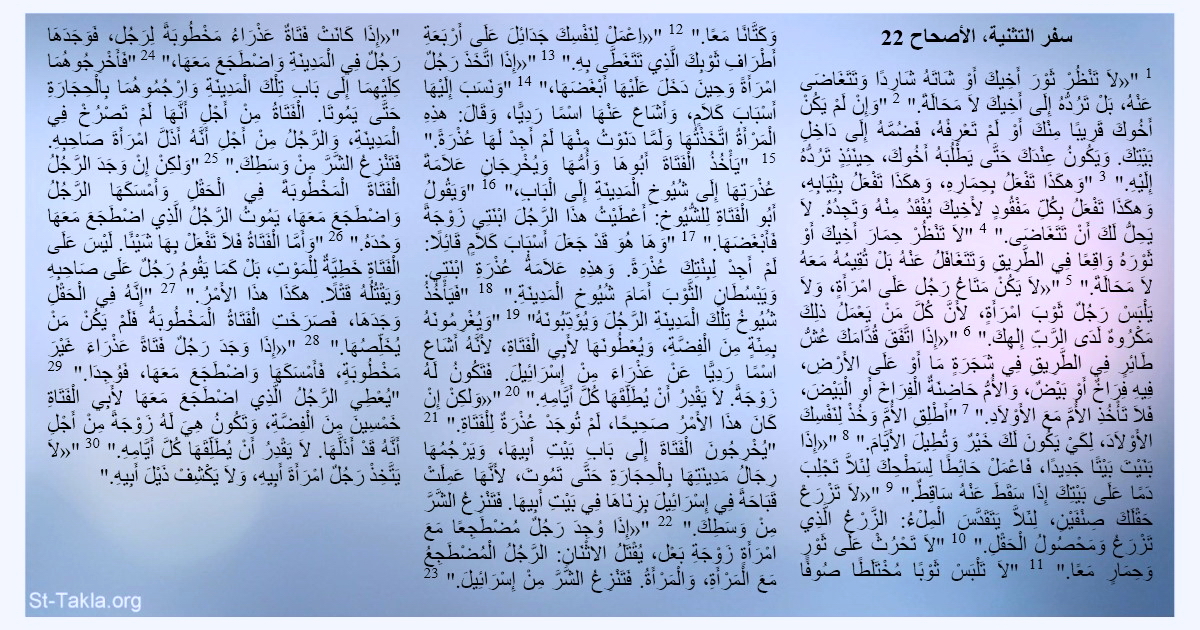 سفر التثنية، الأصحاح 22
1 "«لاَ تَنْظُرْ ثَوْرَ أَخِيكَ أَوْ شَاتَهُ شَارِدًا وَتَتَغَاضَى
عَنْهُ، بَلْ تَرُدُّهُ إِلَى أَخِيكَ لاَ مَحَالَةَ." 2 "وَإِنْ لَمْ يَكُنْ
أَخُوكَ قَرِيبًا مِنْكَ أَوْ لَمْ تَعْرِفْهُ، فَضُمَّهُ إِلَى دَاخِلِ
بَيْتِكَ. وَيَكُونُ عِنْدَكَ حَتَّى يَطْلُبَهُ أَخُوكَ، حِينَئِذٍ تَرُدُّهُ
إِلَيْهِ." 3 "وَهكَذَا تَفْعَلُ بِحِمَارِهِ، وَهكَذَا تَفْعَلُ بِثِيَابِهِ،
وَهكَذَا تَفْعَلُ بِكُلِّ مَفْقُودٍ لأَخِيكَ يُفْقَدُ مِنْهُ وَتَجِدُهُ. لاَ
يَحِلُّ لَكَ أَنْ تَتَغَاضَى." 4 "لاَ تَنْظُرْ حِمَارَ أَخِيكَ أَوْ
ثَوْرَهُ وَاقِعًا فِي الطَّرِيقِ وَتَتَغَافَلُ عَنْهُ بَلْ تُقِيمُهُ مَعَهُ
لاَ مَحَالَةَ." 5 "«لاَ يَكُنْ مَتَاعُ رَجُل عَلَى امْرَأَةٍ، وَلاَ
يَلْبَسْ رَجُلٌ ثَوْبَ امْرَأَةٍ، لأَنَّ كُلَّ مَنْ يَعْمَلُ ذلِكَ
مَكْرُوهٌ لَدَى الرَّبِّ إِلهِكَ." 6 "«إِذَا اتَّفَقَ قُدَّامَكَ عُشُّ
طَائِرٍ فِي الطَّرِيقِ فِي شَجَرَةٍ مَا أَوْ عَلَى الأَرْضِ،
فِيهِ فِرَاخٌ أَوْ بَيْضٌ، وَالأُمُّ حَاضِنَةٌ الْفِرَاخَ أَوِ الْبَيْضَ،
فَلاَ تَأْخُذِ الأُمَّ مَعَ الأَوْلاَدِ." 7 "أَطْلِقِ الأُمَّ وَخُذْ لِنَفْسِكَ
الأَوْلاَدَ، لِكَيْ يَكُونَ لَكَ خَيْرٌ وَتُطِيلَ الأَيَّامَ." 8 "«إِذَا
بَنَيْتَ بَيْتًا جَدِيدًا، فَاعْمَلْ حَائِطًا لِسَطْحِكَ لِئَلاَّ تَجْلِبَ
دَمًا عَلَى بَيْتِكَ إِذَا سَقَطَ عَنْهُ سَاقِطٌ." 9 "«لاَ تَزْرَعْ
حَقْلَكَ صِنْفَيْنِ، لِئَلاَّ يَتَقَدَّسَ الْمِلْءُ: الزَّرْعُ الَّذِي
تَزْرَعُ وَمَحْصُولُ الْحَقْلِ." 10 "لاَ تَحْرُثْ عَلَى ثَوْرٍ
وَحِمَارٍ مَعًا." 11 "لاَ تَلْبَسْ ثَوْبًا مُخْتَلَطًا صُوفًا
وَكَتَّانًا مَعًا." 12 "«اِعْمَلْ لِنَفْسِكَ جَدَائِلَ عَلَى أَرْبَعَةِ
أَطْرَافِ ثَوْبِكَ الَّذِي تَتَغَطَّى بِهِ." 13 "«إِذَا اتَّخَذَ رَجُلٌ
امْرَأَةً وَحِينَ دَخَلَ عَلَيْهَا أَبْغَضَهَا،" 14 "وَنَسَبَ إِلَيْهَا
أَسْبَابَ كَلاَمٍ، وَأَشَاعَ عَنْهَا اسْمًا رَدِيًّا، وَقَالَ: هذِهِ
الْمَرْأَةُ اتَّخَذْتُهَا وَلَمَّا دَنَوْتُ مِنْهَا لَمْ أَجِدْ لَهَا عُذْرَةً."
15 "يَأْخُذُ الْفَتَاةَ أَبُوهَا وَأُمُّهَا وَيُخْرِجَانِ عَلاَمَةَ
عُذْرَتِهَا إِلَى شُيُوخِ الْمَدِينَةِ إِلَى الْبَابِ،" 16 "وَيَقُولُ
أَبُو الْفَتَاةِ لِلشُّيُوخِ: أَعْطَيْتُ هذَا الرَّجُلَ ابْنَتِي زَوْجَةً
فَأَبْغَضَهَا." 17 "وَهَا هُوَ قَدْ جَعَلَ أَسْبَابَ كَلاَمٍ قَائِلاً:
لَمْ أَجِدْ لِبِنْتِكَ عُذْرَةً. وَهذِهِ عَلاَمَةُ عُذْرَةِ ابْنَتِي.
وَيَبْسُطَانِ الثَّوْبَ أَمَامَ شُيُوخِ الْمَدِينَةِ." 18 "فَيَأْخُذُ
شُيُوخُ تِلْكَ الْمَدِينَةِ الرَّجُلَ وَيُؤَدِّبُونَهُ" 19 "وَيُغْرِمُونَهُ
بِمِئَةٍ مِنَ الْفِضَّةِ، وَيُعْطُونَهَا لأَبِي الْفَتَاةِ، لأَنَّهُ أَشَاعَ
اسْمًا رَدِيًّا عَنْ عَذْرَاءَ مِنْ إِسْرَائِيلَ. فَتَكُونُ لَهُ
زَوْجَةً. لاَ يَقْدِرُ أَنْ يُطَلِّقَهَا كُلَّ أَيَّامِهِ." 20 "«وَلكِنْ إِنْ
كَانَ هذَا الأَمْرُ صَحِيحًا، لَمْ تُوجَدْ عُذْرَةٌ لِلْفَتَاةِ." 21
"يُخْرِجُونَ الْفَتَاةَ إِلَى بَابِ بَيْتِ أَبِيهَا، وَيَرْجُمُهَا
رِجَالُ مَدِينَتِهَا بِالْحِجَارَةِ حَتَّى تَمُوتَ، لأَنَّهَا عَمِلَتْ
قَبَاحَةً فِي إِسْرَائِيلَ بِزِنَاهَا فِي بَيْتِ أَبِيهَا. فَتَنْزِعُ الشَّرَّ
مِنْ وَسَطِكَ." 22 "«إِذَا وُجِدَ رَجُلٌ مُضْطَجِعًا مَعَ
امْرَأَةٍ زَوْجَةِ بَعْل، يُقْتَلُ الاثْنَانِ: الرَّجُلُ الْمُضْطَجِعُ
مَعَ الْمَرْأَةِ، وَالْمَرْأَةُ. فَتَنْزِعُ الشَّرَّ مِنْ إِسْرَائِيلَ." 23
"«إِذَا كَانَتْ فَتَاةٌ عَذْرَاءُ مَخْطُوبَةً لِرَجُل، فَوَجَدَهَا
رَجُلٌ فِي الْمَدِينَةِ وَاضْطَجَعَ مَعَهَا،" 24 "فَأَخْرِجُوهُمَا
كِلَيْهِمَا إِلَى بَابِ تِلْكَ الْمَدِينَةِ وَارْجُمُوهُمَا بِالْحِجَارَةِ
حَتَّى يَمُوتَا. الْفَتَاةُ مِنْ أَجْلِ أَنَّهَا لَمْ تَصْرُخْ فِي
الْمَدِينَةِ، وَالرَّجُلُ مِنْ أَجْلِ أَنَّهُ أَذَلَّ امْرَأَةَ صَاحِبِهِ.
فَتَنْزِعُ الشَّرَّ مِنْ وَسَطِكَ." 25 "وَلكِنْ إِنْ وَجَدَ الرَّجُلُ
الْفَتَاةَ الْمَخْطُوبَةَ فِي الْحَقْلِ وَأَمْسَكَهَا الرَّجُلُ
وَاضْطَجَعَ مَعَهَا، يَمُوتُ الرَّجُلُ الَّذِي اضْطَجَعَ مَعَهَا
وَحْدَهُ." 26 "وَأَمَّا الْفَتَاةُ فَلاَ تَفْعَلْ بِهَا شَيْئًا. لَيْسَ عَلَى
الْفَتَاةِ خَطِيَّةٌ لِلْمَوْتِ، بَلْ كَمَا يَقُومُ رَجُلٌ عَلَى صَاحِبِهِ
وَيَقْتُلُهُ قَتْلاً. هكَذَا هذَا الأَمْرُ." 27 "إِنَّهُ فِي الْحَقْلِ
وَجَدَهَا، فَصَرَخَتِ الْفَتَاةُ الْمَخْطُوبَةُ فَلَمْ يَكُنْ مَنْ
يُخَلِّصُهَا." 28 "«إِذَا وَجَدَ رَجُلٌ فَتَاةً عَذْرَاءَ غَيْرَ
مَخْطُوبَةٍ، فَأَمْسَكَهَا وَاضْطَجَعَ مَعَهَا، فَوُجِدَا." 29
"يُعْطِي الرَّجُلُ الَّذِي اضْطَجَعَ مَعَهَا لأَبِي الْفَتَاةِ
خَمْسِينَ مِنَ الْفِضَّةِ، وَتَكُونُ هِيَ لَهُ زَوْجَةً مِنْ أَجْلِ
أَنَّهُ قَدْ أَذَلَّهَا. لاَ يَقْدِرُ أَنْ يُطَلِّقَهَا كُلَّ أَيَّامِهِ." 30 "«لاَ
يَتَّخِذْ رَجُلٌ امْرَأَةَ أَبِيهِ، وَلاَ يَكْشِفْ ذَيْلَ أَبِيهِ."
St-Takla.org